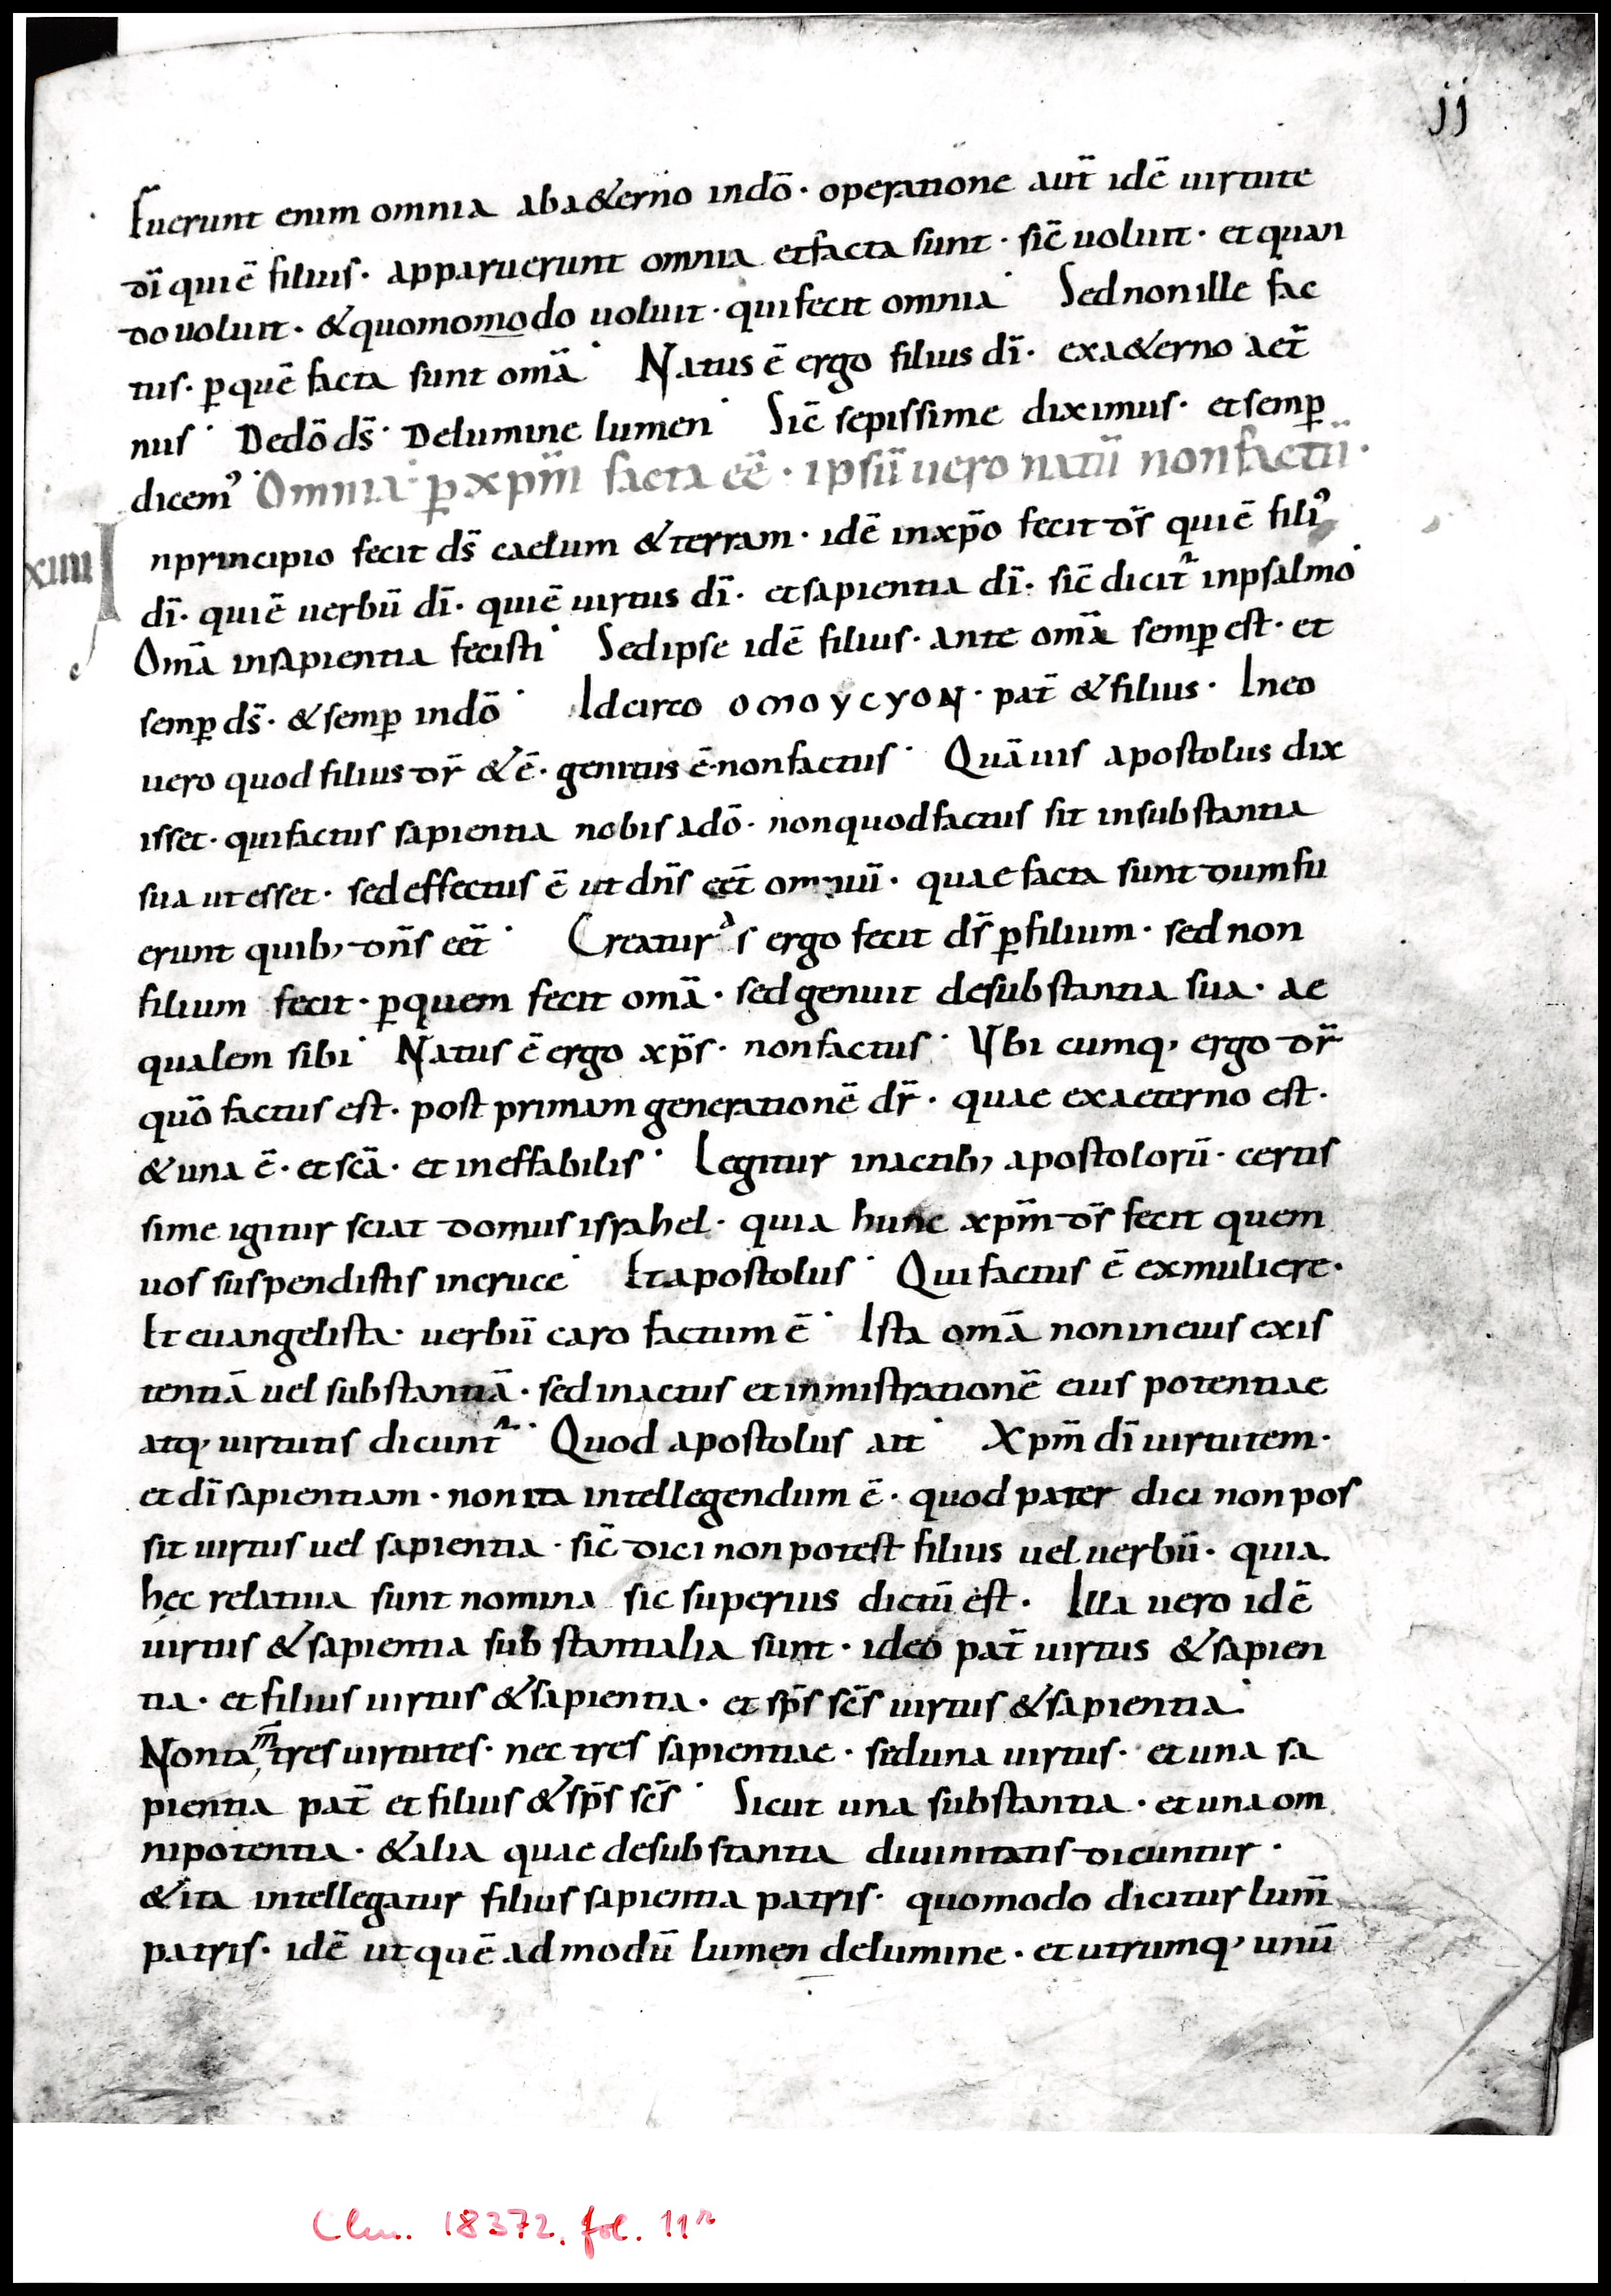 jj
Fuerunt enim omnia aba&erno indō· operatione aut̄ idē uirtute
dī quiē filius· apparuerunt omnia etfacta sunt· sic̄ uoluit· et quan
do uoluit· &quomomodo uoluit· quifecit omnia· Sed nonille fac
tus· ꝑquē facta sunt om̄a· Natus ē ergo filius dī· exa&erno aet̄
nus· Dedō ds̄· Delumine lumen· Sic̄ sepissime diximus· etsemꝑ
dicemꝰ· Omnia ꝑ xpm̄ facta eē· ipsū uero natū non factū·
xiiii Inprincipio fecit ds̄ caelum &terram· idē inxp̄o fecit ds̄ quiē filiꝰ
dī· quiē uerbū dī· quiē uirtus dī· etsapientia dī· sic̄ dicit᷑ inpsalmo·
Om̄a insapientia fecisti· Sedipse idē filius· ante om̄a semꝑ est· et
semꝑ ds̄· &semꝑ indō· Idcirco omoycyon· pat̄ &filius· Ineo
uero quod filius dr̄ &ē· genitus ē·nonfactus· Quāuis apostolus dix
isset· quifactus sapientia nobis adō· nonquodfactus sit insubstantia
sua ut esset· sedeffectus ē ut dn̄s eēt omniū· quae facta sunt dumfu
erunt quib; dn̄s eēt· Creaturas ergo fecit ds̄ ꝑfilium· sed non
filium fecit· ꝑquem fecit om̄a· sedgenuit desubstantia sua· ae
qualem sibi· Natus ē ergo xp̄s· nonfactus· Vbi cumq; ergo dr̄
quō factus est· post primam generationē dr̄· quae exaeterno est·
&una ē· et sc̄a· et ineffabilis· Legitur inactib; apostolorū· certis
sime igitur sciat domus israhel· quia hunc xpm̄ ds̄ fecit quem
uos suspendistis incruce· Et apostolus· Quifactus ē exmuliere·
Et euangelista· uerbū caro factum ē· Ista om̄a nonineius exis
tentiā uel substantiā· sedinactus et inmistrationē eius potentiae
atq; uirtutis dicunt᷑· Quod apostolus ait· Xpm̄ dī uirtutem·
et dī sapientiam· nonita intellegendum ē· quod pater dici non pos
sit uirtus uel sapientia· sic̄ dici non potest filius uel uerbū· quia
hęc relatiua sunt nomina sic superius dictū est· Illa uero idē
uirtus &sapientia substantialia sunt· ideo pat̄ uirtus &sapien
tia· et filius uirtus &sapientia· et sp̄s sc̄s uirtus &sapientia·
Nontam̄ tres uirtutes· nec tres sapientiae· seduna uirtus· et una sa
pientia pat̄ et filius &sp̄s sc̄s· Sicut una substantia· et una om
nipotentia· &alia quae desubstantia diuinitatis dicuntur·
&ita intellegatur filius sapientia patris· quomodo dicitur lum̄
patris· idē ut quē admodū lumen delumine· et utrumq; unū
Clm. 18372. fol. 11r